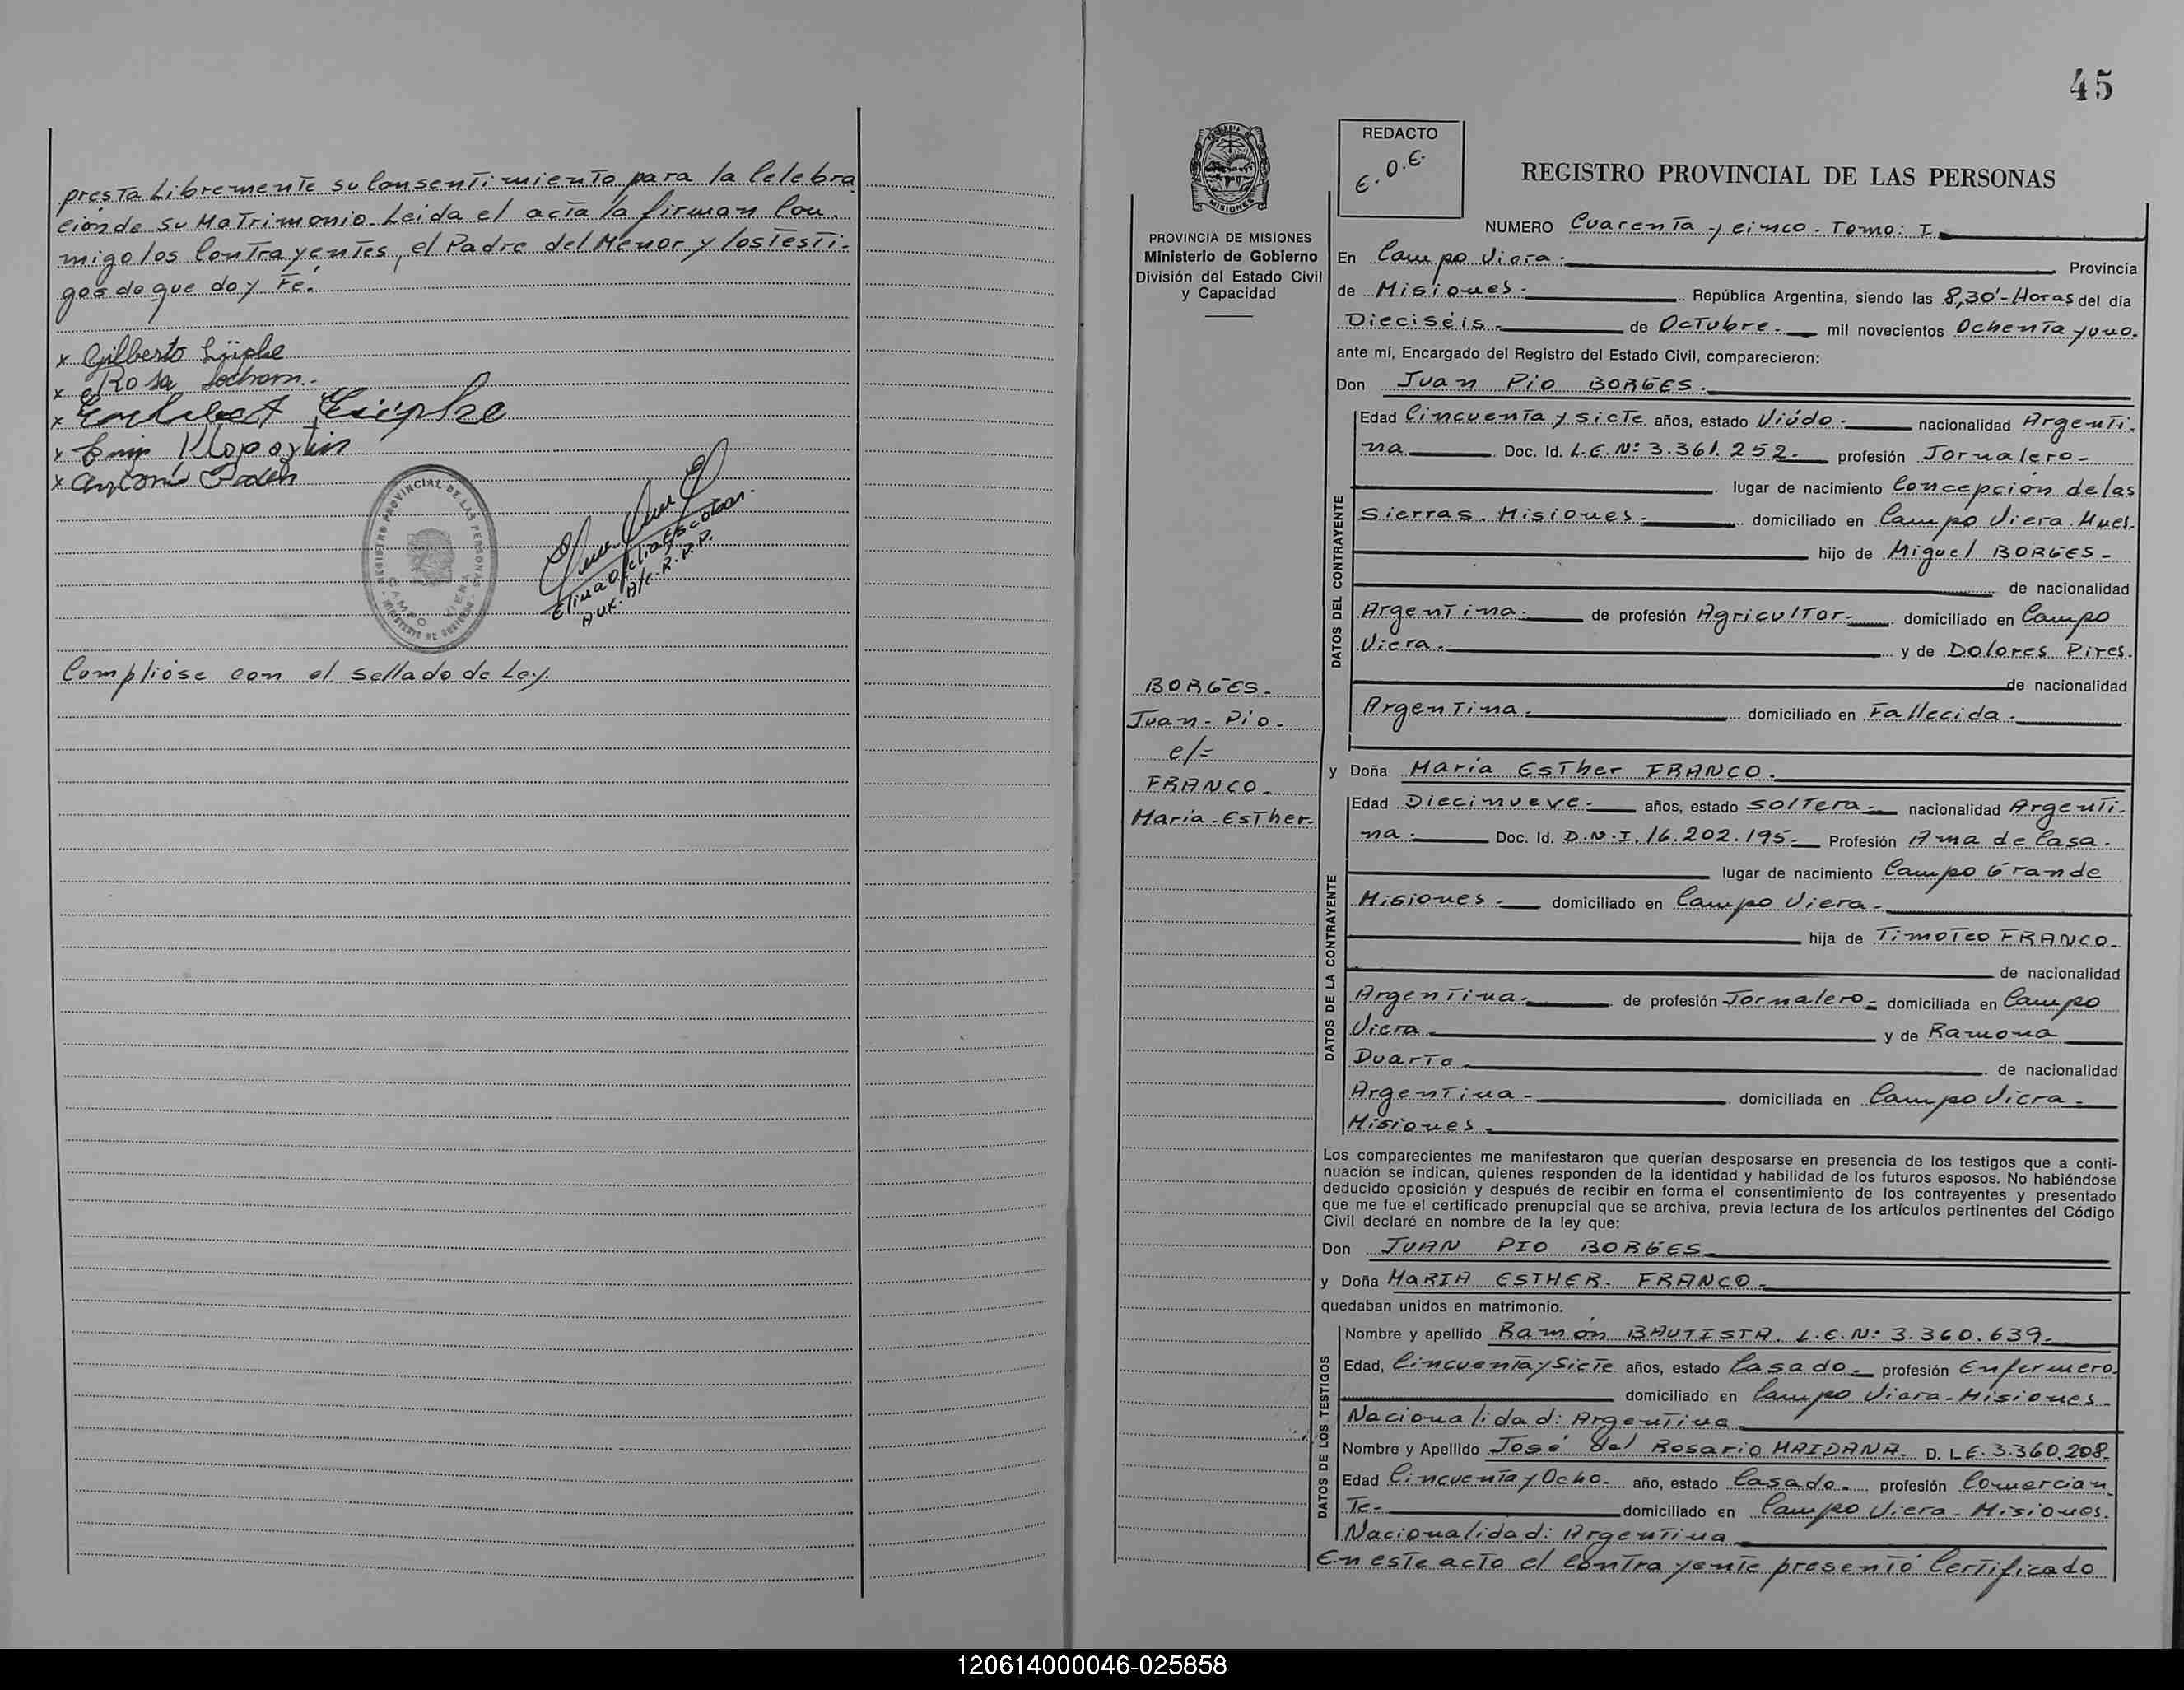 presta Libremente su Consentimiento para la Celebra
ción de su Matrimonio. Leida el acta la firman Con-
migo los Contrayentes, el Padre del Menor y los Testi-
gos de que doy Fé.
x Gilberto Lüpke
x Rosa
x
x
x Antonio
REGISTRO PROVINCIAL DE LAS PERSONAS
CAMPO VIERA
MINISTERIO DE GOBIERNO
Elina Ofelia Escobar.
Aux. A/c. R.P.P.
Cumplióse con el sellado de Ley.
45
PROVINCIA DE MISIONES
Ministerio de Gobierno
División del Estado Civil
y Capacidad
BORGES.
Juan - Pio.
c/=
FRANCO.
Maria - Esther.
REDACTO
E.O.E.
REGISTRO PROVINCIAL DE LAS PERSONAS
NUMERO Cuarenta y cinco. Tomo: I.
En Campo Viera. Provincia
de Misiones. República Argentina, siendo las 8,30'-Horas del día
Dieciséis. de Octubre. mil novecientos Ochenta y uno.
ante mí, Encargado del Registro del Estado Civil, comparecieron:
Don Juan Pio BORGES.
DATOS DEL CONTRAYENTE
Edad Cincuenta y siete años, estado Viúdo. nacionalidad Argenti-
na Doc. Id. L.E.Nº 3.361.252. profesión Jornalero-
lugar de nacimiento Concepción de las
Sierras. Misiones. domiciliado en Campo Viera. Mnes.
hijo de Miguel BORGES-
de nacionalidad
Argentina. de profesión Agricultor. domiciliado en Campo
Viera. y de Dolores Pires.
de nacionalidad
Argentina. domiciliado en Fallecida.
y Doña Maria Esther FRANCO.
DATOS DE LA CONTRAYENTE
Edad Diecinueve. años, estado soltera. nacionalidad Argenti-
na. Doc. Id. D.N.I. 16.202.195. Profesión Ama de Casa.
lugar de nacimiento Campo Grande
Misiones. domiciliado en Campo Viera.
hija de Timoteo FRANCO.
de nacionalidad
Argentina. de profesión Jornalero. domiciliada en Campo
Viera y de Ramona
Duarte de nacionalidad
Argentina. domiciliada en Campo Viera.
Misiones.
Los comparecientes me manifestaron que querían desposarse en presencia de los testigos que a conti-
nuación se indican, quienes responden de la identidad y habilidad de los futuros esposos. No habiéndose
deducido oposición y después de recibir en forma el consentimiento de los contrayentes y presentado
que me fue el certificado prenupcial que se archiva, previa lectura de los artículos pertinentes del Código
Civil declaré en nombre de la ley que:
Don JUAN PIO BORGES
y Doña MARIA ESTHER. FRANCO.
quedaban unidos en matrimonio.
DATOS DE LOS TESTIGOS
Nombre y apellido Ramón BAUTISTA. L.E.Nº 3.360.639.
Edad, Cincuenta y Siete años, estado Casado. profesión Enfermero
domiciliado en Campo Viera-Misiones.
Nacionalidad: Argentina
Nombre y Apellido José del Rosario MAIDANA. D. L.E. 3.360.208
Edad Cincuenta y Ocho. año, estado Casado. profesión Comercian
Te- domiciliado en Campo Viera-Misiones.
Nacionalidad: Argentina
En este acto el contrayente presentó Certificado
120614000046-025858